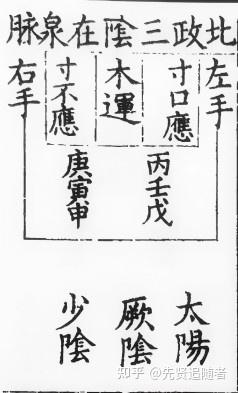 北政三陰在泉脉
左手
寸口應
木運
寸不應
右手
丙壬戊
庚寅申
太陽
厥陰
少陰
知乎 @先贤追随者